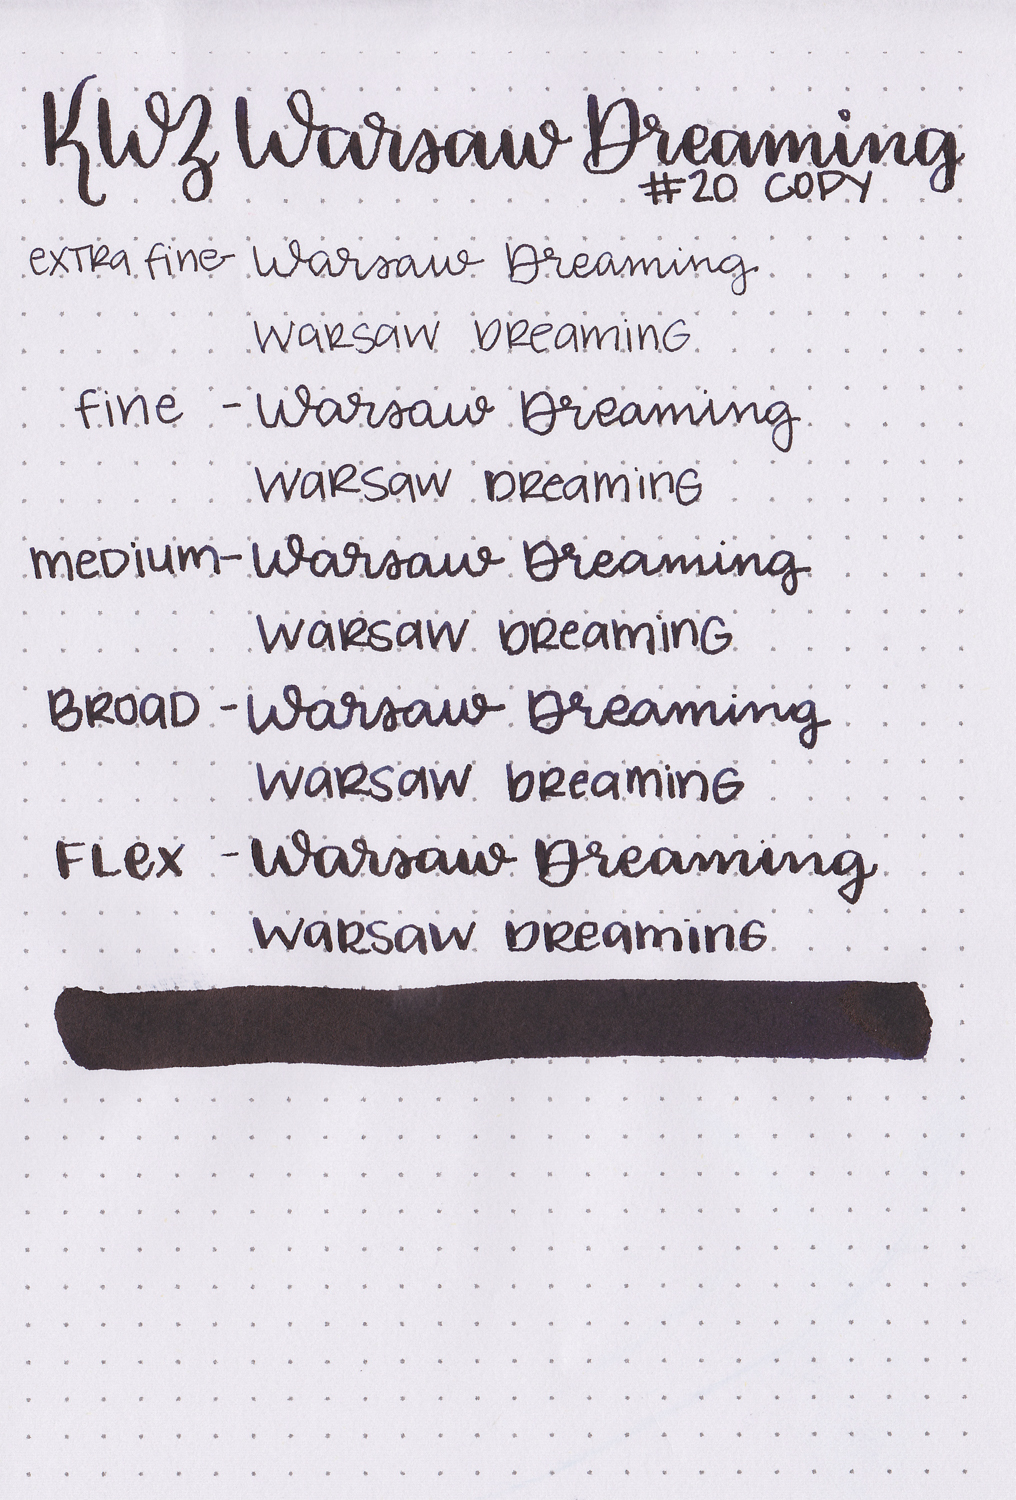 KWZ Warsaw Dreaming
#20 COPY
extra fine - Warsaw Dreaming
Warsaw Dreaming
fine - Warsaw Dreaming
Warsaw Dreaming
medium - Warsaw Dreaming
Warsaw Dreaming
Broad - Warsaw Dreaming
Warsaw Dreaming
Flex - Warsaw Dreaming
Warsaw Dreaming